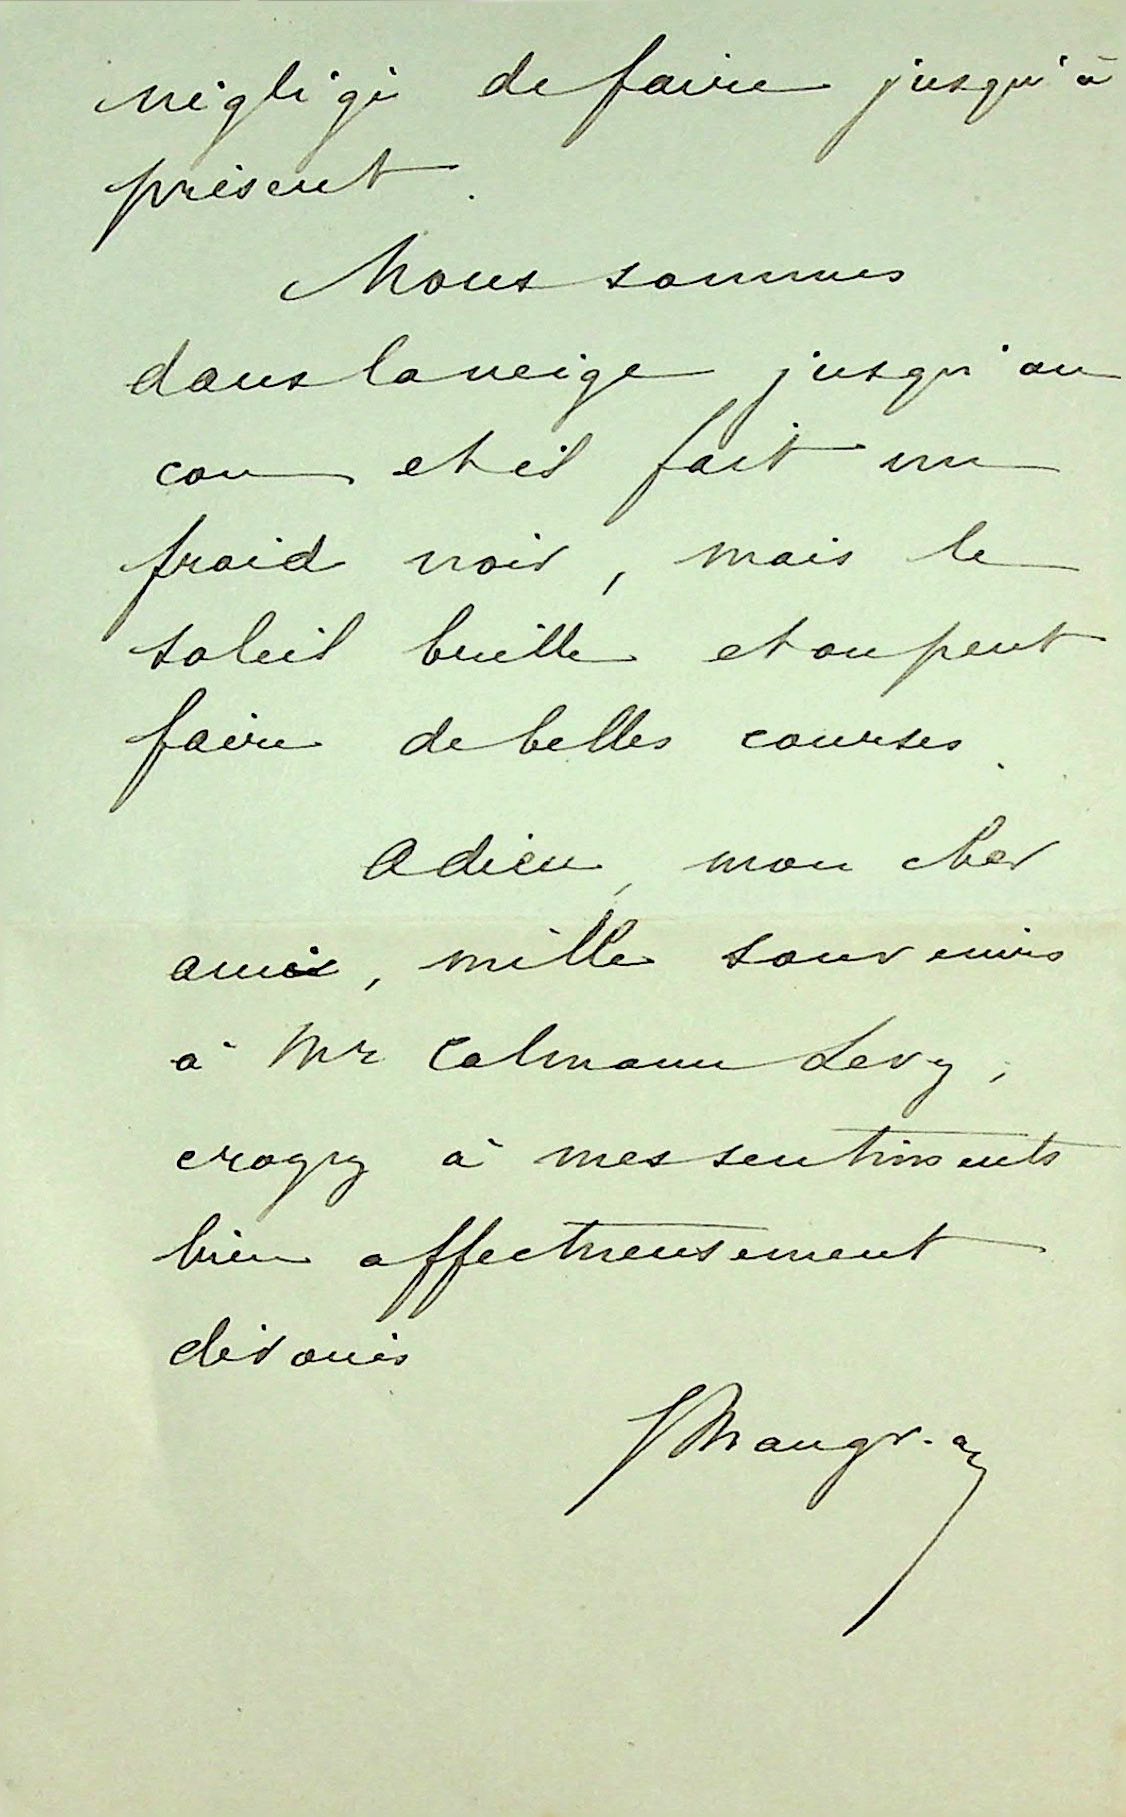 négligé de faire jusqu'à
présent.
Nous sommes
dans la neige jusqu'au
cou et il fait un
froid noir, mais le
soleil brille et on peut
faire de belles courses.
Adieu, mon cher
ami, mille souvenirs
à Mr Calmann Levy,
croyez à mes sentiments
bien affectueusement
dévoués
G Maugras